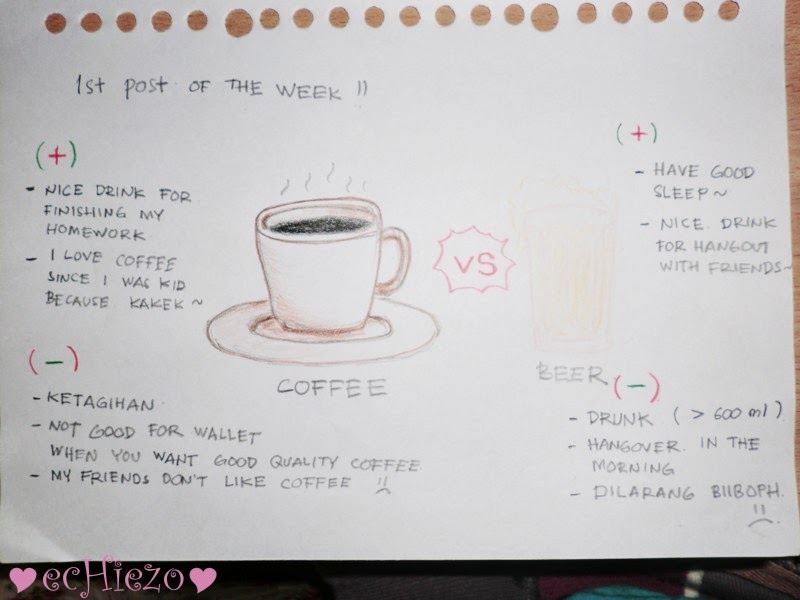 1st post OF THE WEEK !!
(+)
- NICE DRINK FOR
FINISHING MY
HOMEWORK.
- I LOVE COFFEE
SINCE I WAS KID
BECAUSE KAKEK ~
(-)
- KETAGIHAN.
- NOT GOOD FOR WALLET
WHEN YOU WANT GOOD QUALITY COFFEE
- MY FRIENDS DON'T LIKE COFFEE
COFFEE
VS
BEER
(+)
- HAVE GOOD
SLEEP ~
- NICE. DRINK
FOR HANGOUT
WITH FRIENDS ~
(-)
- DRUNK ( > 600 ml )
- HANGOVER. IN THE
MORNING
- DILARANG BIIBOPH.
ecHiezo